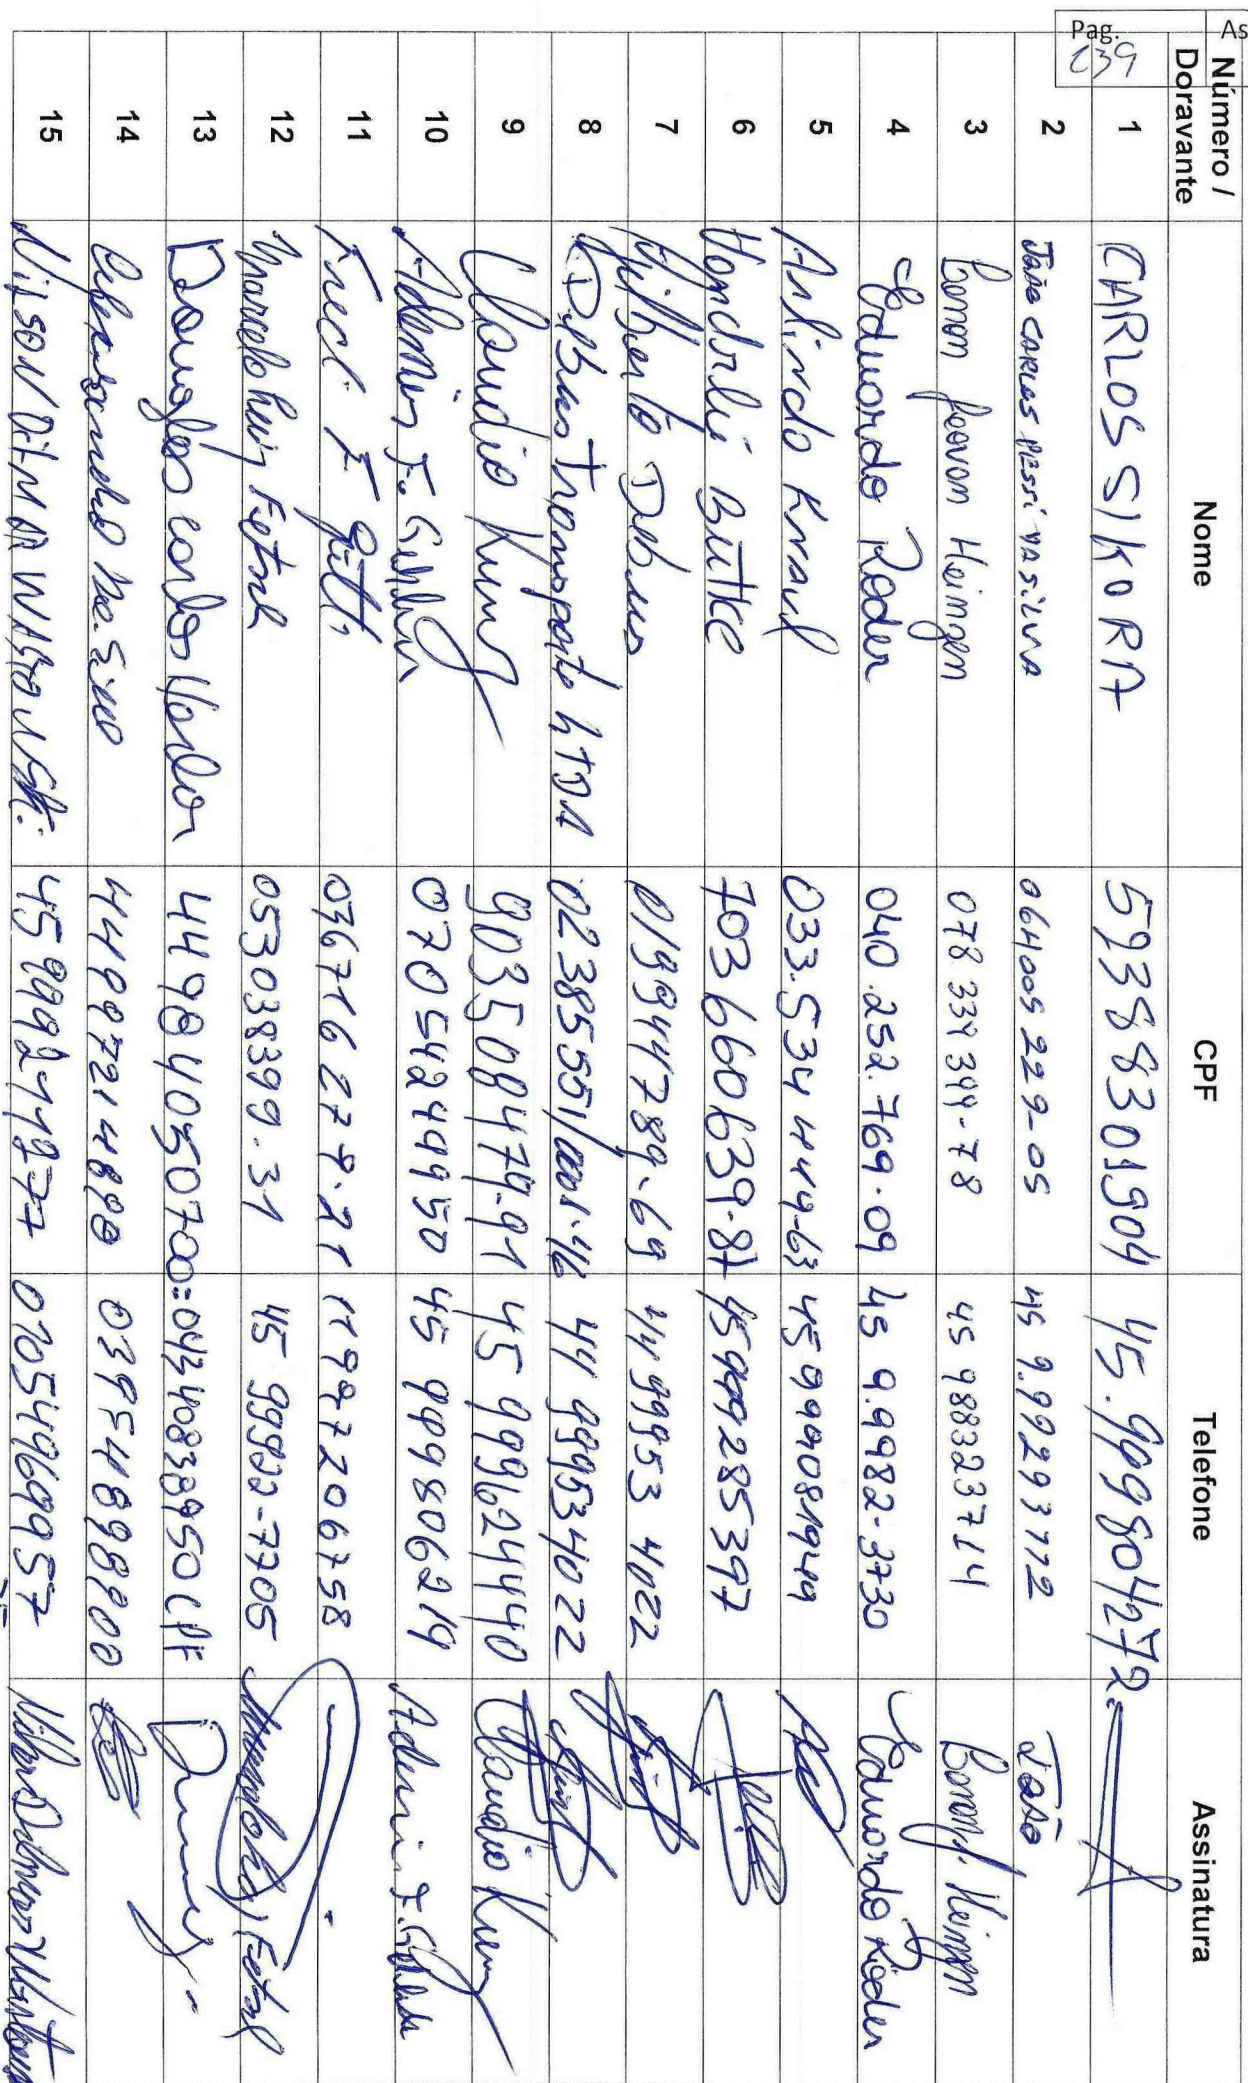 Pag. As
139
Número / Doravante Nome CPF Telefone Assinatura
1 CARLOS SIKORA 59388301904 45.999804272
2 João CARLOS PESSI DA SILVA 064005229-05 45 9.99293112 João
3 Renan Jeovan Heimgen 078 339 399-78 45 988323714
4 Eduardo Roder 040.252.769.09 45 9.9982-3730 Eduardo Roder
5 Arlindo Kraul 033.534 449-63 45 999081949
6 Handrli Butke 703660639.87 45999285397
7 Gilberto Debus 019944789-69 44 99953 4022
8 Debus Transporte LTDA 02385551/0001.46 44 999534022
9 Claudio Kunz 903508479-91 45 999624440 Claudio Kunz
10 Ademir F. 07054244950 45 999806219 Ademir F.
11 Fredi F 036716279.21 11997206758
12 Marcelo Luiz Fetzel 053038399.31 45 99922-7705 Marcelo Luiz Fetzel
13 Douglas Carlos 44984050700 = 04340838950 CPF
14 44999721 4898 03954898900
15 Nilson Ditmar 45 999211977 01054969957 Nilson